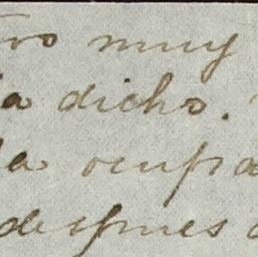 tro muy
ia dicho.
la ocupa
despues